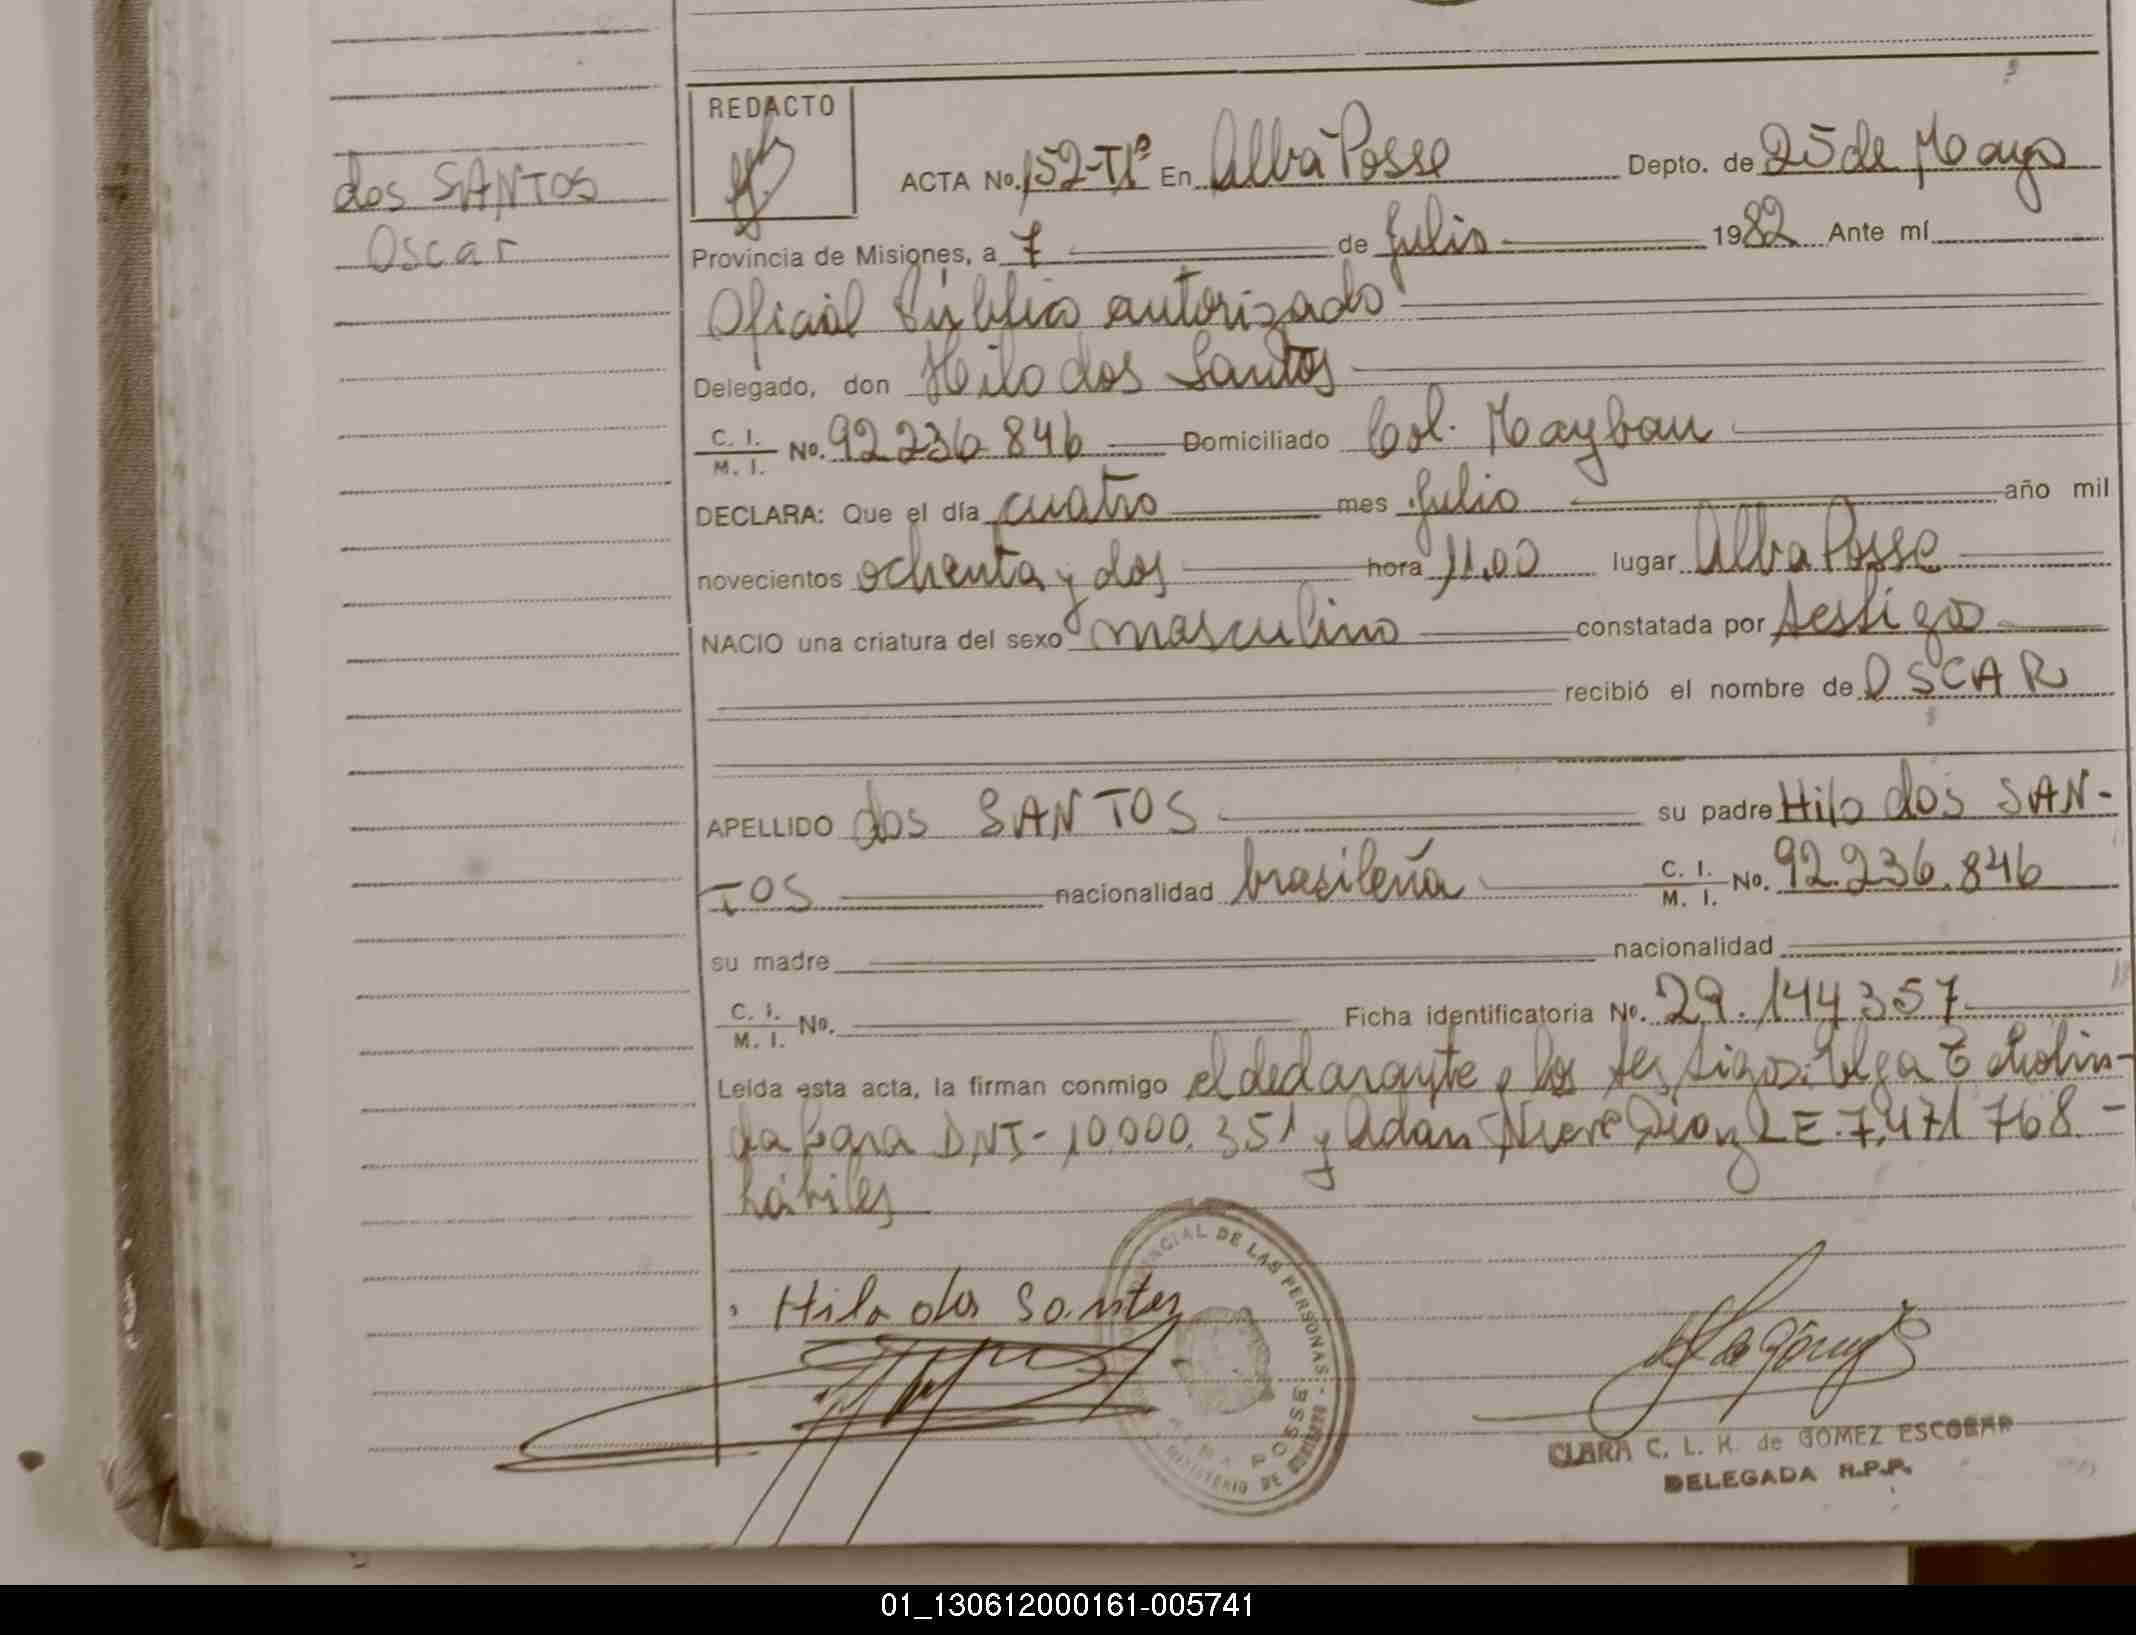 dos SANTOS
Oscar
REDACTO
ACTA No. 152-Tº En Alba Posse Depto. de 25 de Mayo
Provincia de Misiones, a 7 de Julio 1982 Ante mí
Oficial Público autorizado
Delegado, don Hilo dos Santos
C. I. / M. I. No. 92 236 846 Domiciliado Col. Mayban
DECLARA: Que el día cuatro mes Julio año mil
novecientos ochenta y dos hora 11,00 lugar Alba Posse
NACIO una criatura del sexo masculino constatada por testigo
recibió el nombre de OSCAR
APELLIDO dos SANTOS su padre Hilo dos SAN-
TOS nacionalidad brasileña C. I. / M. I. No. 92.236.846
su madre nacionalidad
C. I. / M. I. No. Ficha identificatoria No. 29.144.357
Leída esta acta, la firman conmigo el declarante y los testigos:
DNI- 10.000.351 y Adan LE. 7.471 768 -
hábiles
Hilo dos Santos
DE LAS PERSONAS -
ALBA POSSE
MINISTERIO DE GOBIERNO
CLARA C. L. K. de GOMEZ ESCOBAR
DELEGADA R.P.P.
01_130612000161-005741